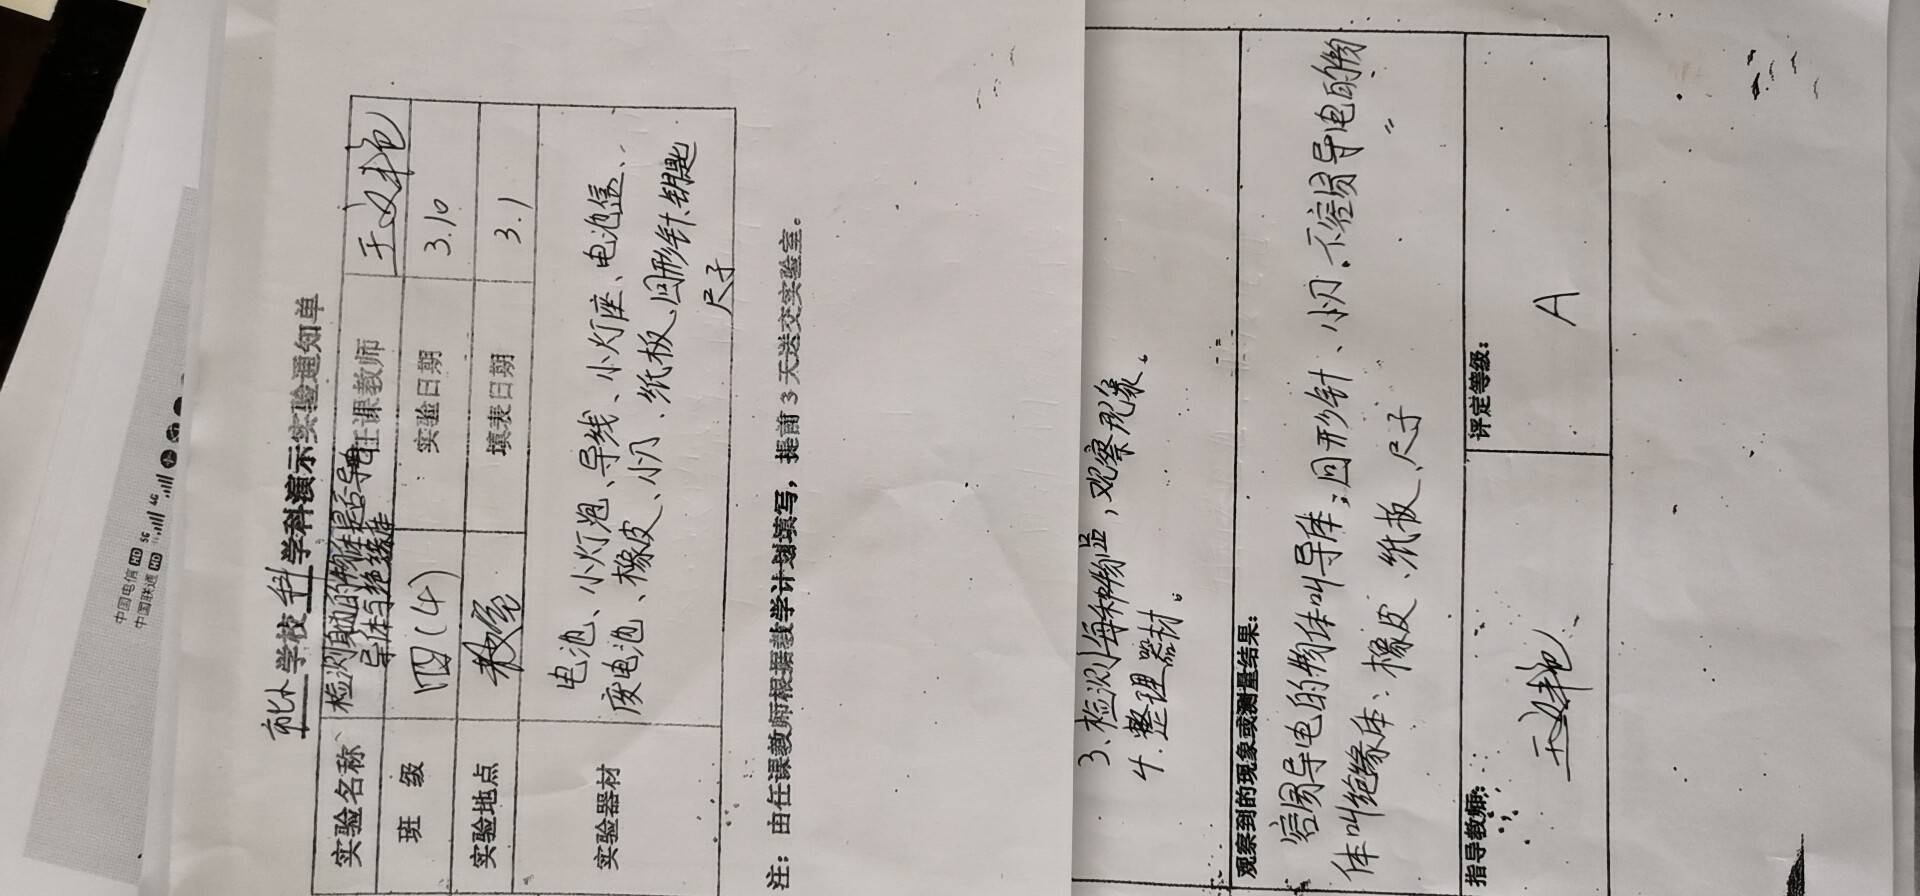 中国电信 HD 5G 4G
中国联通 HD
学校 科 学科演示实验通知单
实验名称 检测身边的物体是否导电 导体与绝缘体 任课教师 王文艳
班 级 四(4) 实验日期 3.10
实验地点 教室 填表日期 3.1
实验器材 电池、小灯泡、导线、小灯座、电池盒、
废电池、橡皮、小刀、纸板、回形针、钥匙
尺子
注：由任课教师根据教学计划填写，提前3天送交实验室。
3.检测每种物品，观察现象。
4.整理器材。
观察到的现象或测量结果：
容易导电的物体叫导体：回形针、小刀.不容易导电的物
体叫绝缘体：橡皮、纸板、尺子
指导教师： 王文艳
评定等级： A